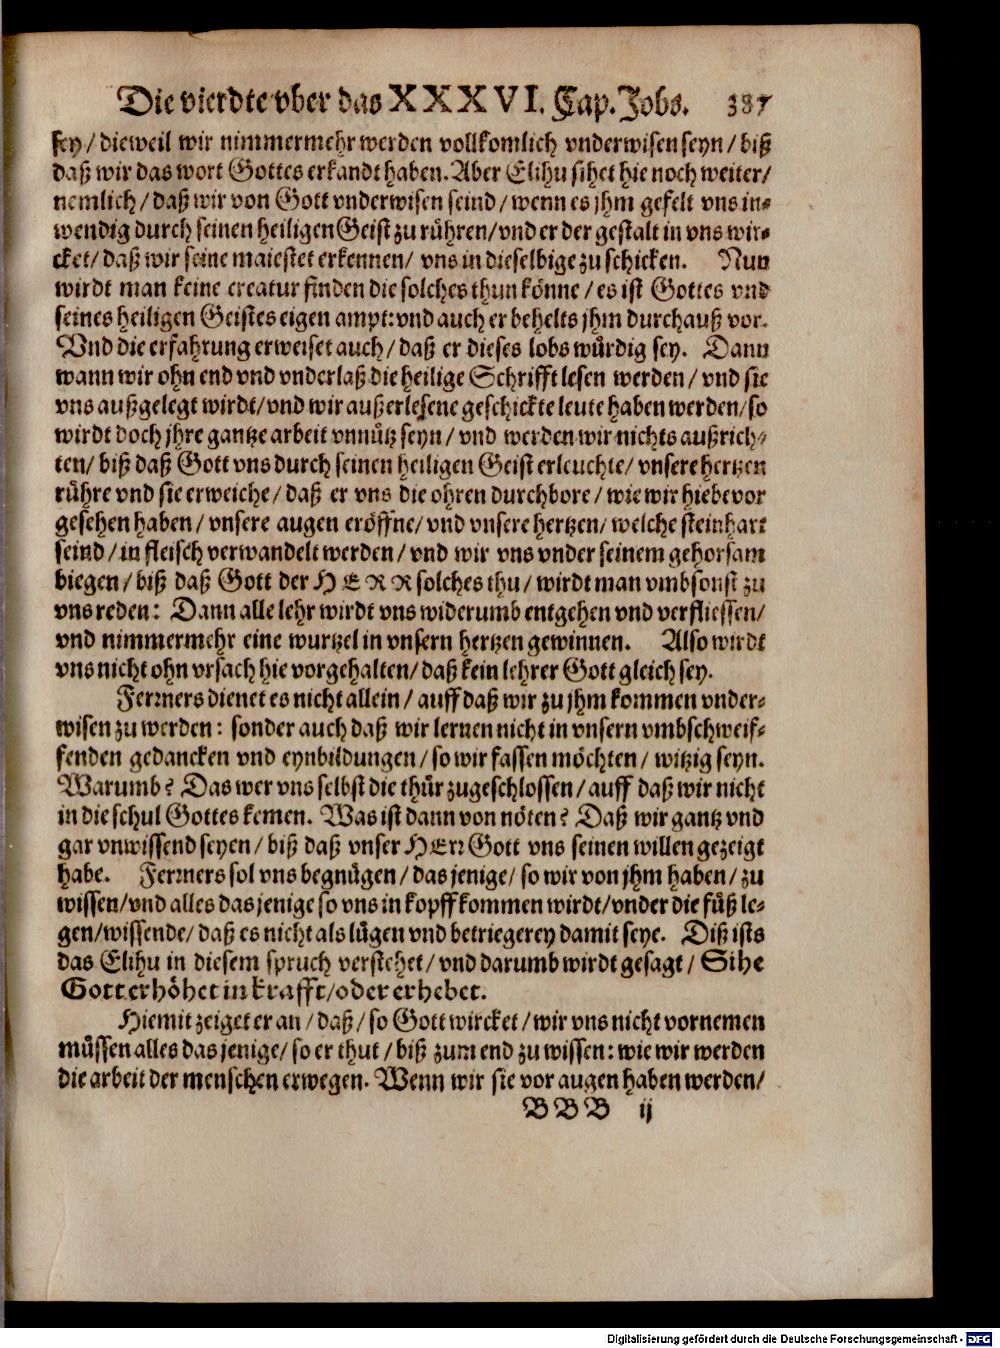 Die vierdte vber das XXXVI. Cap. Jobs. 387
sey/ dieweil wir nimmermehr werden vollkomlich vnderwisen seyn/ biß
daß wir das wort Gottes erkandt haben. Aber Elihu sihet hie noch weiter/
nemlich/ daß wir von Gott vnderwisen seind/ wenn es jhm gefelt vns in-
wendig durch seinen heiligen Geist zu rühren/ vnd er der gestalt in vns wir-
cket/ daß wir seine maiestet erkennen/ vns in dieselbige zu schicken. Nun
wirdt man keine creatur finden die solches thun könne/ es ist Gottes vnd
seines heiligen Geistes eigen ampt: vnd auch er behelts jhm durchauß vor.
Vnd die erfahrung erweiset auch/ daß er dieses lobs würdig sey. Dann
wann wir ohn end vnd vnderlaß die heilige Schrifft lesen werden/ vnd sie
vns außgelegt wirdt/ vnd wir außerlesene geschickte leute haben werden/ so
wirdt doch jhre gantze arbeit vnnütz seyn/ vnd werden wir nichts außrich-
ten/ biß daß Gott vns durch seinen heiligen Geist erleuchte/ vnsere hertzen
rühre vnd sie erweiche/ daß er vns die ohren durchbore/ wie wir hiebevor
gesehen haben/ vnsere augen eröffne/ vnd vnsere hertzen/ welche steinhart
seind/ in fleisch verwandelt werden/ vnd wir vns vnder seinem gehorsam
biegen/ biß daß Gott der HERR solches thu/ wirdt man vmbsonst zu
vns reden: Dann alle lehr wirdt vns widerumb entgehen vnd verfliessen/
vnd nimmermehr eine wurtzel in vnsern hertzen gewinnen. Also wirdt
vns nicht ohn vrsach hie vorgehalten/ daß kein lehrer Gott gleich sey.
Ferrners dienet es nicht allein/ auff daß wir zu jhm kommen vnder-
wisen zu werden: sonder auch daß wir lernen nicht in vnsern vmbschweif-
fenden gedancken vnd eynbildungen/ so wir fassen möchten/ witzig seyn.
Warumb? Das wer vns selbst die thür zugeschlossen/ auff daß wir nicht
in die schul Gottes kemen. Was ist dann von nöten? Daß wir gantz vnd
gar vnwissend seyen/ biß daß vnser HErr Gott vns seinen willen gezeigt
habe. Ferrners sol vns begnügen/ das jenige/ so wir von jhm haben/ zu
wissen/ vnd alles das jenige so vns in kopff kommen wirdt/ vnder die füß le-
gen/ wissende/ daß es nicht als lügen vnd betriegerey damit seye. Diß ists
das Elihu in diesem spruch verstehet/ vnd darumb wirdt gesagt/ Sihe
Gott erhöhet in krafft/ oder erhebet.
Hiemit zeiget er an/ daß/ so Gott wircket/ wir vns nicht vornemen
müssen alles das jenige/ so er thut/ biß zum end zu wissen: wie wir werden
die arbeit der menschen erwegen. Wenn wir sie vor augen haben werden/
BBB ij
Digitalisierung gefördert durch die Deutsche Forschungsgemeinschaft - DFG